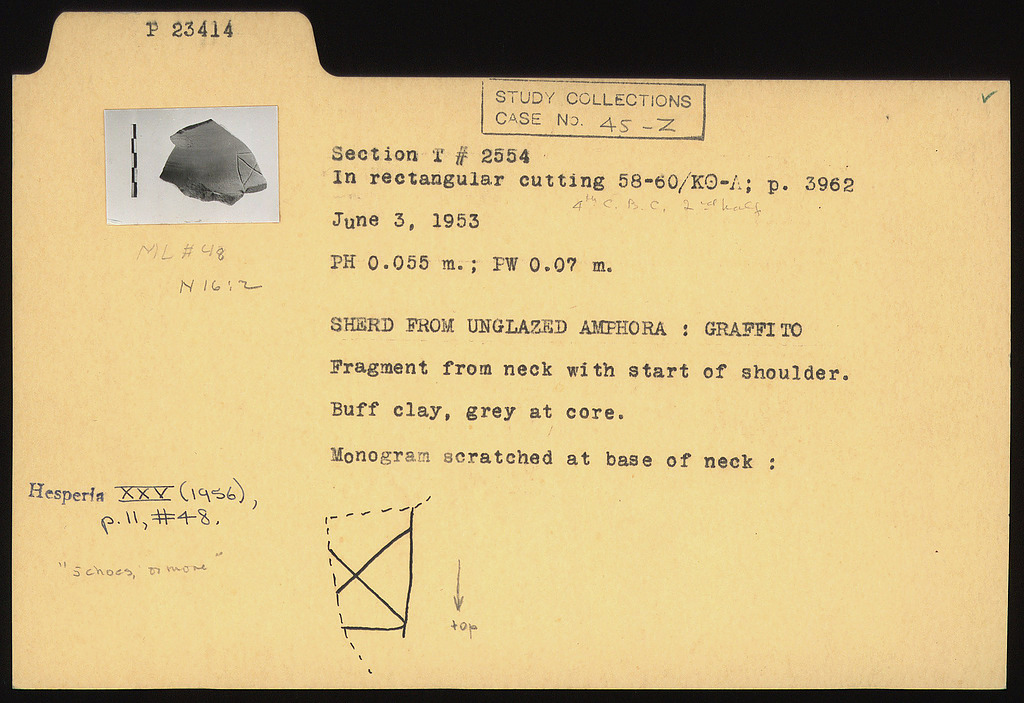 P 23414
STUDY COLLECTIONS
CASE No. 45-Z
Section T # 2554
In rectangular cutting 58-60/ΚΘ-Λ; p. 3962
4th C. B.C. 2nd half
June 3, 1953
PH 0.055 m.; PW 0.07 m.
ML #48
N 16:2
SHERD FROM UNGLAZED AMPHORA : GRAFFITO
Fragment from neck with start of shoulder.
Buff clay, grey at core.
Monogram scratched at base of neck :
Hesperia XXV (1956),
p. 11, #48.
"5 choes, or more"
top